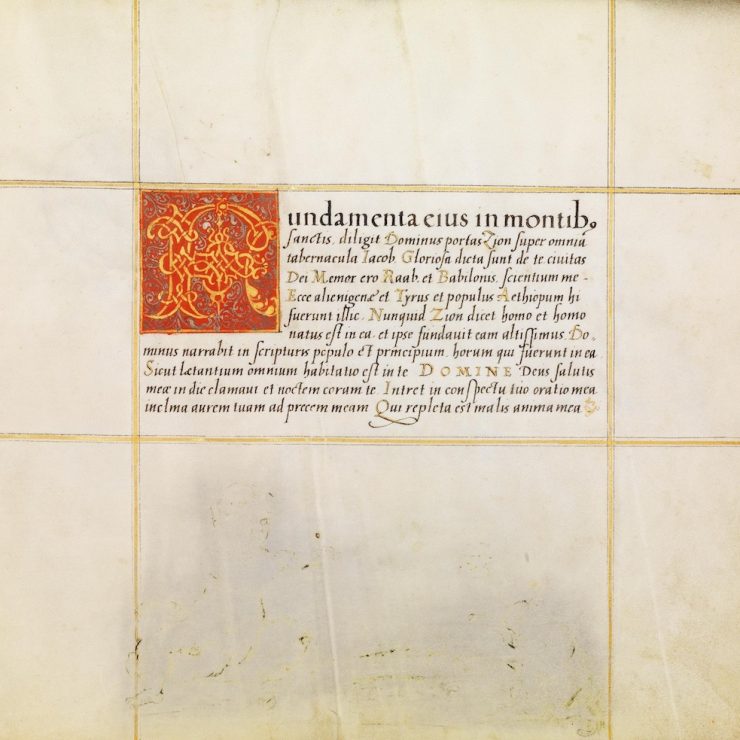 Fundamenta eius in montibꝰ
sanctis, diligit Dominus portas Zion super omnia
tabernacula Iacob. Gloriosa dicta sunt de te. civitas
Dei Memor ero Raab. et Babilonis. scientium me -
Ecce alienigenæ et Tyrus et populus Aethiopum hi
fuerunt illic. Nunquid Zion dicet homo et homo
natus est in ea. et ipse fundavit eam altissimus. Do-
minus narrabit in scripturis populo et principium. horum qui fuerunt in ea
Sicut lætantium omnium habitatio est in te DOMINE Deus salutis
meæ in die clamavi et noctem coram te. Intret in conspectu tuo oratio mea
inclma aurem tuam ad precem meam Qui repleta est malis anima mea